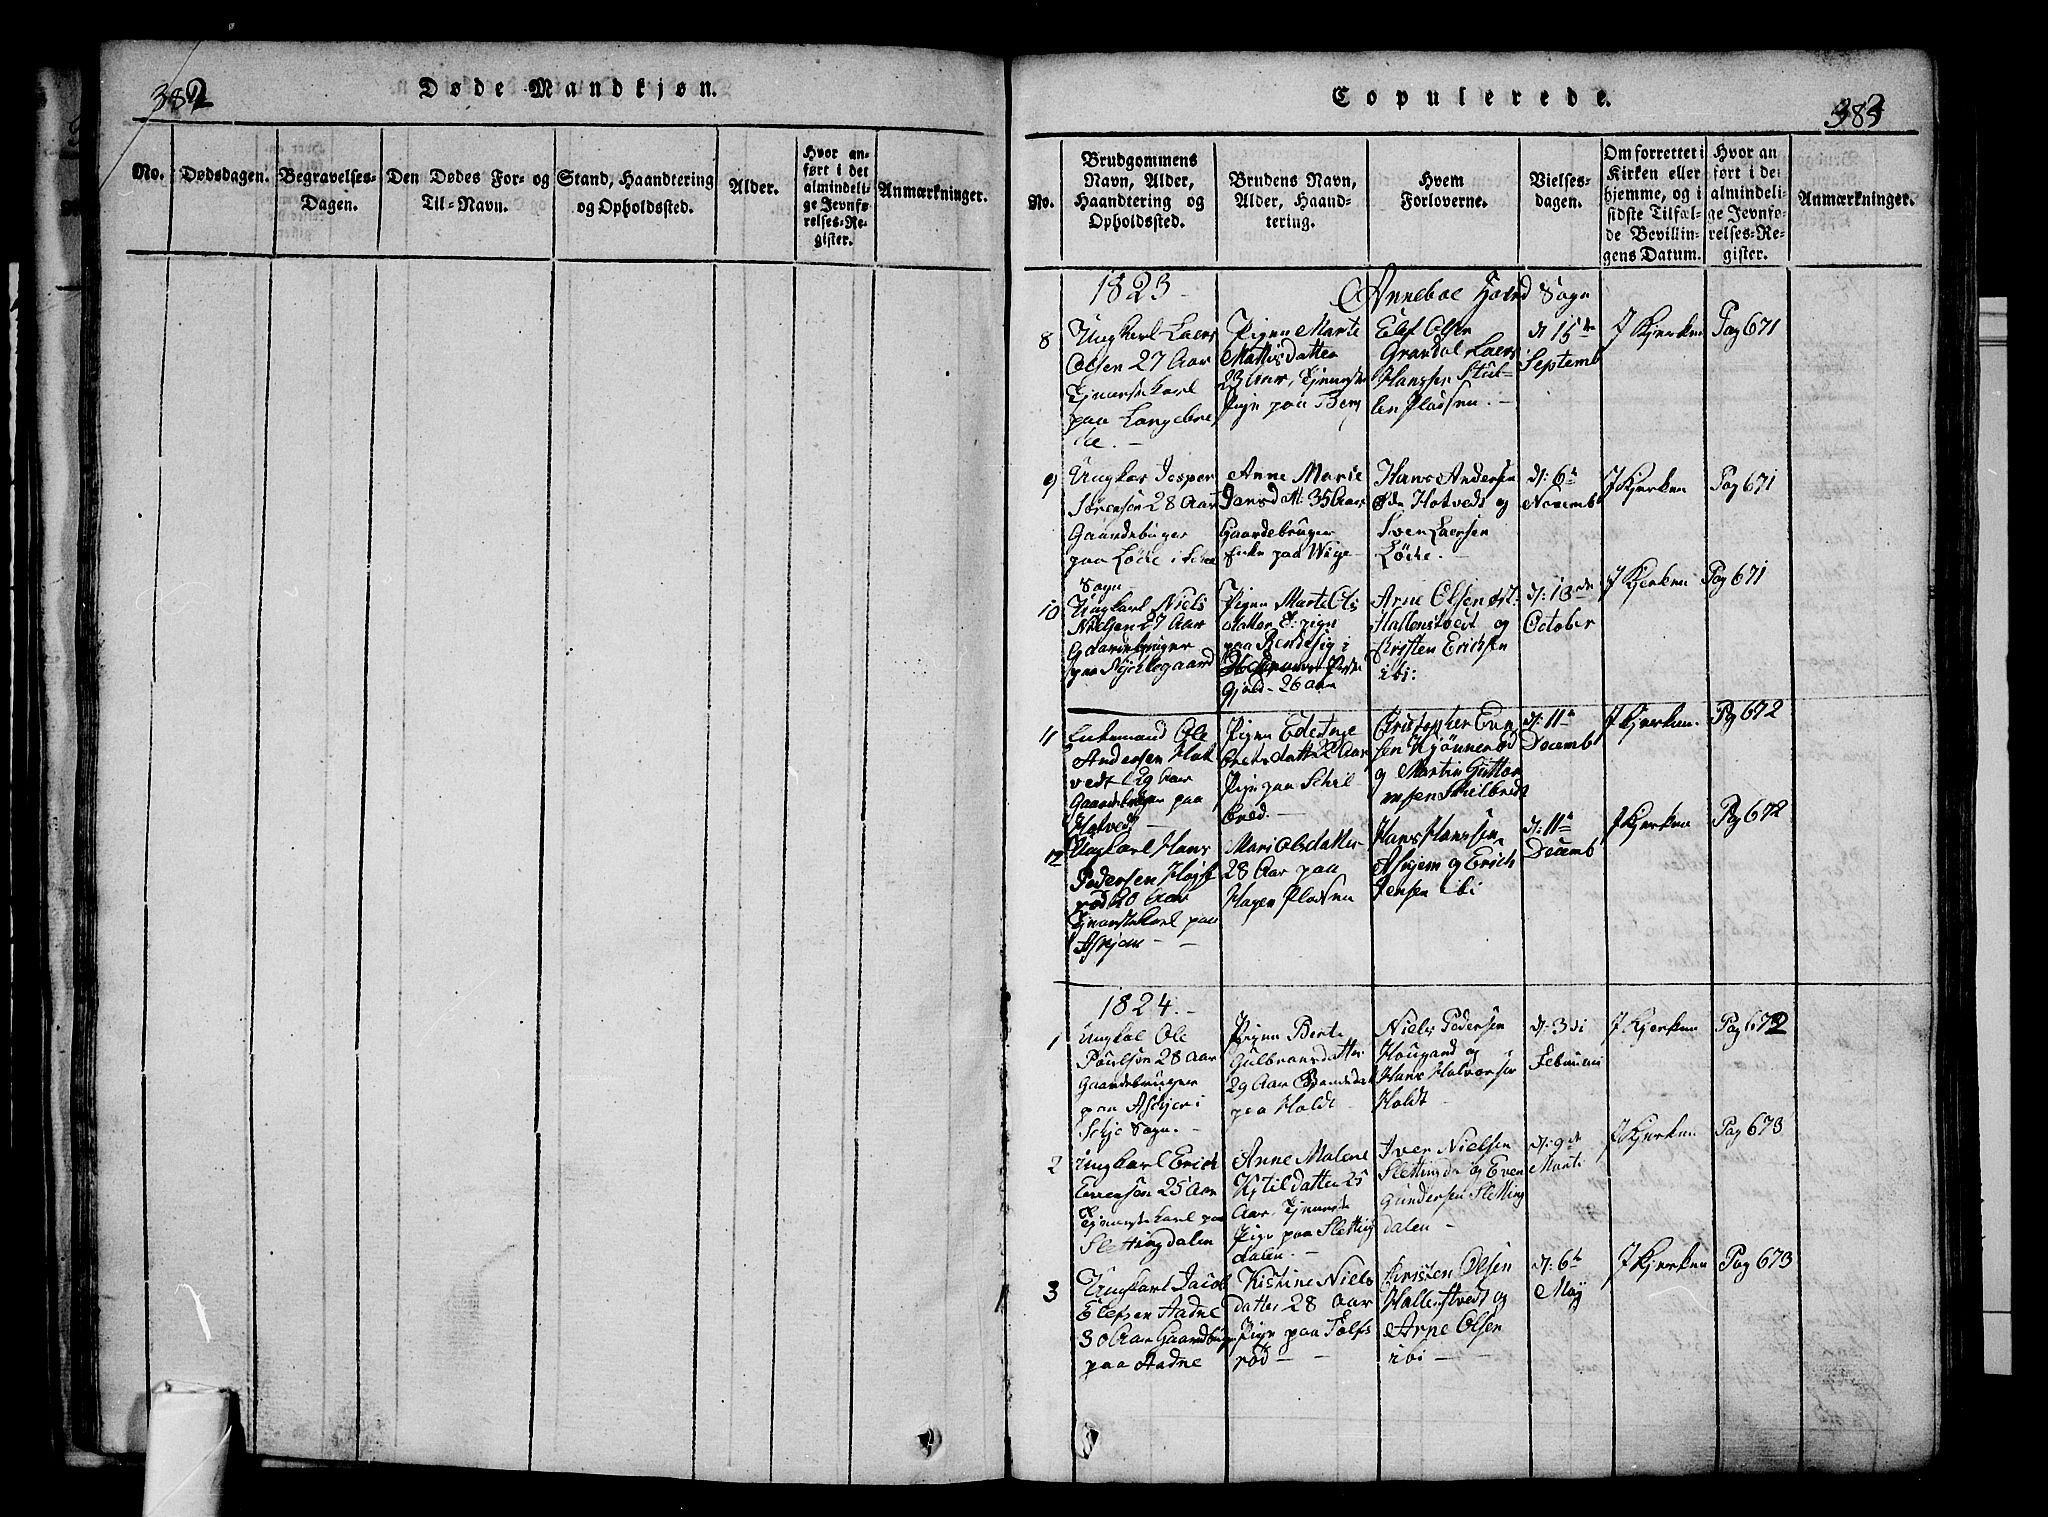 382
Døde Mandkjøn.
No.
Dødsdagen.
Begravelses-
Dagen.
Den Dødes For- og
Til-Navn.
Stand, Haandtering
og Opholdssted.
Alder.
Hvor an-
ført i det
almindeli-
ge Jevnfø-
relses-Re-
gister.
Anmærkninger.
Copulerede.
383
No.
Brudgommens
Navn, Alder,
Haandtering og
Opholdssted.
Brudens Navn,
Alder, Haand-
tering.
Hvem
Forloverne.
Vielses-
dagen.
Om forrettet i
Kirken eller
hjemme, og i
sidste Tilfæl-
de Bevillin-
gens Datum.
Hvor an
ført i de
almindeli-
ge Jevnfø-
relses-Re-
gister.
Anmærkninger.
1823
Anneboe Sogn
8
Ungkarl Laers
Olsen 27 Aar
Tjenestekarl
paa Langebre
ke.
Pigen Marte
Mathisdatter
23 Aar, Tjeneste
Pige paa Berg
Elef Olsen
Grandal Laers
Hanssen Stul-
len Pladsen.
d 15de
Septemb
I Kjerken
Pag 671
9
Ungkar Jesper
Sørensen 28 Aar
Gaardebruger
paa Løcke i
Sogn
Anne Marie
Jensdatt: 35 Aar
Gaardebruger
Enke paa Wige
Hans Andersen
Hotvedt og
Sven Laersen
Løcke.
d: 6te
Novemb
I Kjerken
Pag 671
10
Ungkarl Niels
Nielsen 27 Aar
Gaardebruger
paa
Pigen Marte Ols
datter T: pige
paa i
Gjeld - 26 Aar
Arne Olsen
Hallenstvedt og
Kirsten Ericksen
ibi:
d: 13de
October
I Kjerken
Pag 671
11
Enkemand Ole
Andersen Hot
vedt 29 Aar
Gaardebruger paa
Hotvedt
Pigen Edel Inge
bretsdatt 22 Aar
Pige paa Schil
bred.
Cristopher Even
sen Kjønnerød
og Martin Guttor
msen Skilbredt
d: 11te
Decemb
I Kjerken
Pg 672
12
Ungkarl Hans
Pedersen Høgst
rød 20 Aar
Tjenestekarl paa
Askjem
Mari Olsdatter
28 Aar paa
Hagen Pladsen
Hans Hanssen
Askjem og Erich
Jensen ibi
d: 11te
Decemb
I Kjerken
Pag 672
1824.
1
Ungkal Ole
Poulsen 28 Aar
Gaardebruger
paa Askjer i
Sogn.
Pigen Berte
Gulbransdatter
29 Aar
paa Holdt
Niels Pedersen
Hougand og
Hans Halvorsen
Holdt
d: 3di
Februarii
I Kjerken
Pag 672
2
Ungkarl Erich
25 Aar
Tjenestekarl paa
Slettingdalen
Anne Malene
Kjtildatter 25
Aar, Tjeneste
Pige paa Sletting
dalen.
Iver Nielsen
Slettingda og Even
Gundersen Sletting
dalen
d: 9de
Marti
I Kjerken
Pag 673
3
Ungkarl Jacob
Elefsen Aadne
30 Aar Gaardbruger
paa Aadne
Kistine Niels
datter 28 Aar
Pige paa Tolfs
rød
Kirsten Olsen
Hallenstvedt og
Arne Olsen
ibi
d: 6te
Maÿ
I Kjerken
Pag 673